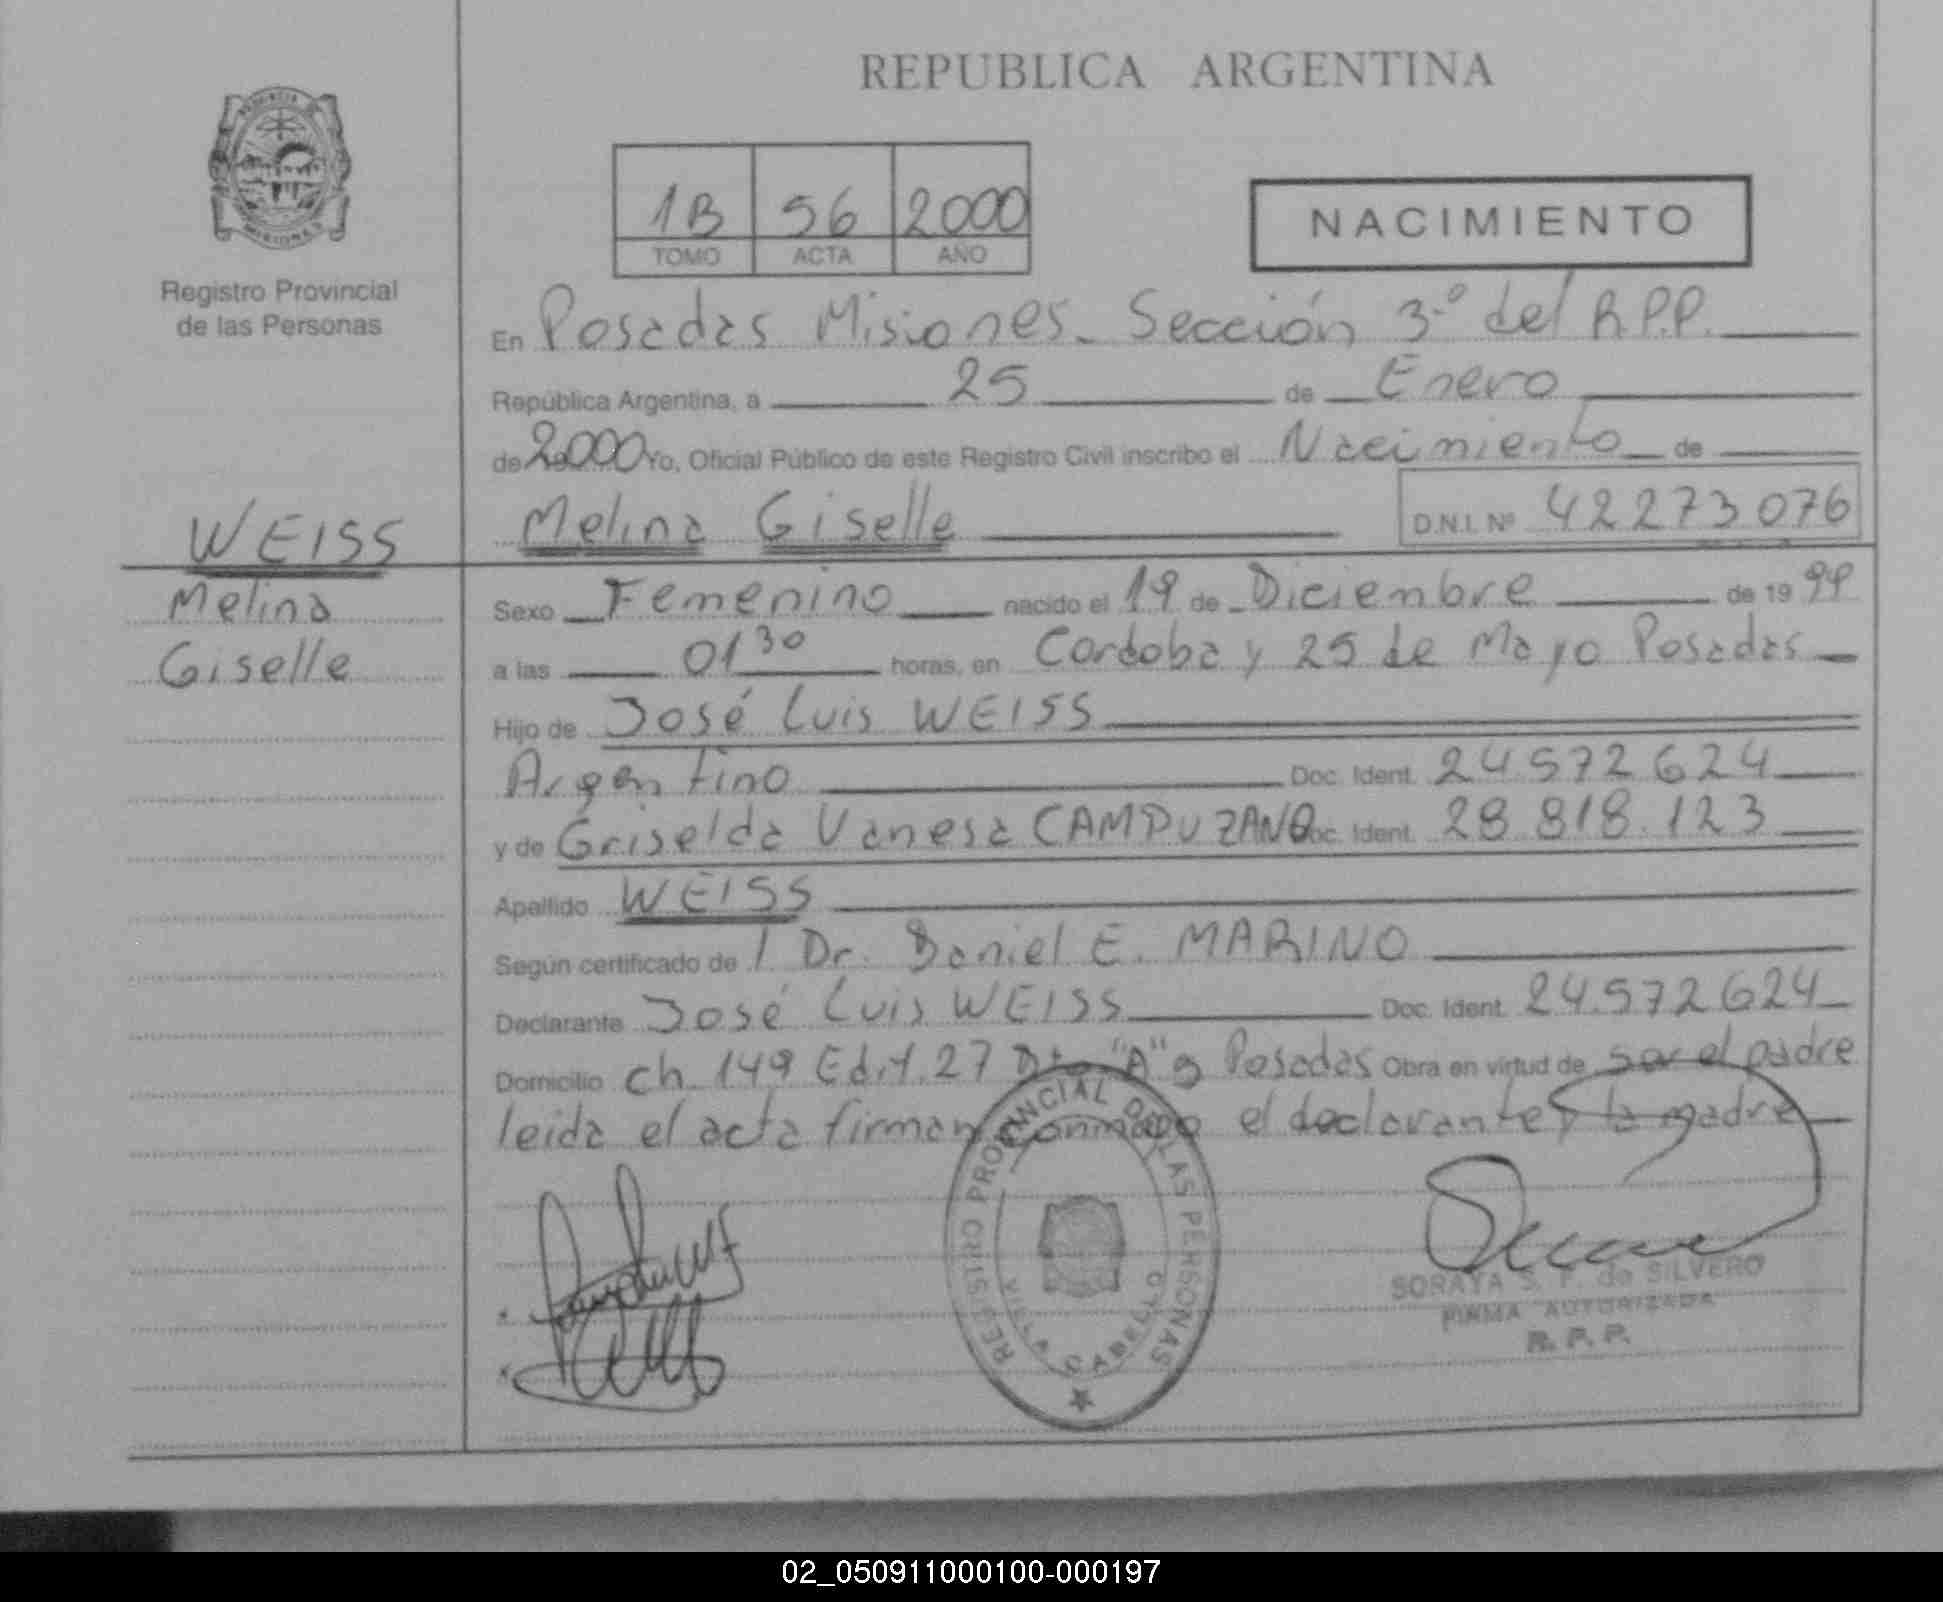 REPUBLICA ARGENTINA
PROVINCIA DE
MISIONES
Registro Provincial
de las Personas
1B 56 2000
TOMO ACTA AÑO
NACIMIENTO
En Posadas Misiones - Sección 3º del R.P.P.
República Argentina, a 25 de Enero
de 2000 Yo, Oficial Público de este Registro Civil inscribo el Nacimiento de
WEISS
Melina
Giselle
Melina Giselle D.N.I. Nº 42273076
Sexo Femenino nacido el 19 de Diciembre de 1999
a las 01 30 horas, en Cordoba y 25 de Mayo Posadas
Hijo de José Luis WEISS
Argentino Doc. Ident. 24.572.624
y de Griselda Vanesa CAMPUZANO Doc. Ident. 28.818.123
Apellido WEISS
Según certificado de l Dr. Daniel E. MARINO
Declarante José Luis WEISS Doc. Ident. 24.572.624
Domicilio ch 149 Edif. 27 "A" Posadas Obra en virtud de ser el padre
leida el acta firman conmigo el declarante y la madre
REGISTRO PROVINCIAL DE LAS PERSONAS
VILLA CABELLO
SORAYA S. F. de SILVERO
FIRMA AUTORIZADA
R. P. P.
02_050911000100-000197